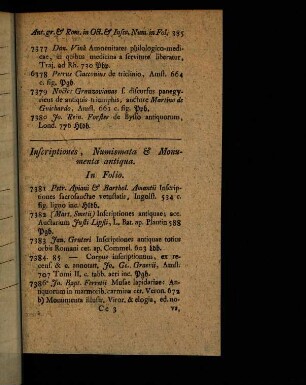 Ant. gr. & Rom. in Oct. & Inscr. Num. in Fol. 395
7377 Dan. Vink Amoenitates philologico-medi-
cae, in quibus medicina a servitute liberatur,
Traj. ad Rh. 730 Pbz.
6178 Petrus Ciacconius de triclinio, Amst. 664
c. fig. Pgb.
7379 Noctes Granzovianae s. discursus panegy-
ricus de antiquis triumphis, auctore Martino de
Guichardo, Amst. 661. c. fig. Pgb.
7380 Jo. Rein. Forster de bysso antiquorum,
Lond. 776 Hldb.
Inscriptiones, Numismata & Monu-
menta antiqua.
In Folio.
7381 Petr. Apiani & Barthol. Amantii Inscrip-
tiones sacrosanctae vetustatis, Ingolst. 534 c.
fig. ligno inc. Hldb.
7382 (Mart. Smetii) Inscriptiones antiquae; acc.
Auctarium Justi Lipsii, L. Bat. ap. Plantin 588
Pgb.
7383 Jan. Gruteri Inscriptiones antiquae totius
orbis Romani cet. ap. Commel. 603 ldb.
7384. 85 — Corpus inscriptionum, ex re-
cens. & c. annotatt. Jo. Ge. Graevii, Amst.
707 Tomi II. c. tabb. aeri inc. Pgb.
7386 Jo. Bapt. Ferretii Musae lapidariae: An-
tiquorum in marmorib. carmina cet. Veron. 672
b) Monumenta illustr. Viror. & elogia, ed. no-
Cc 3 va,